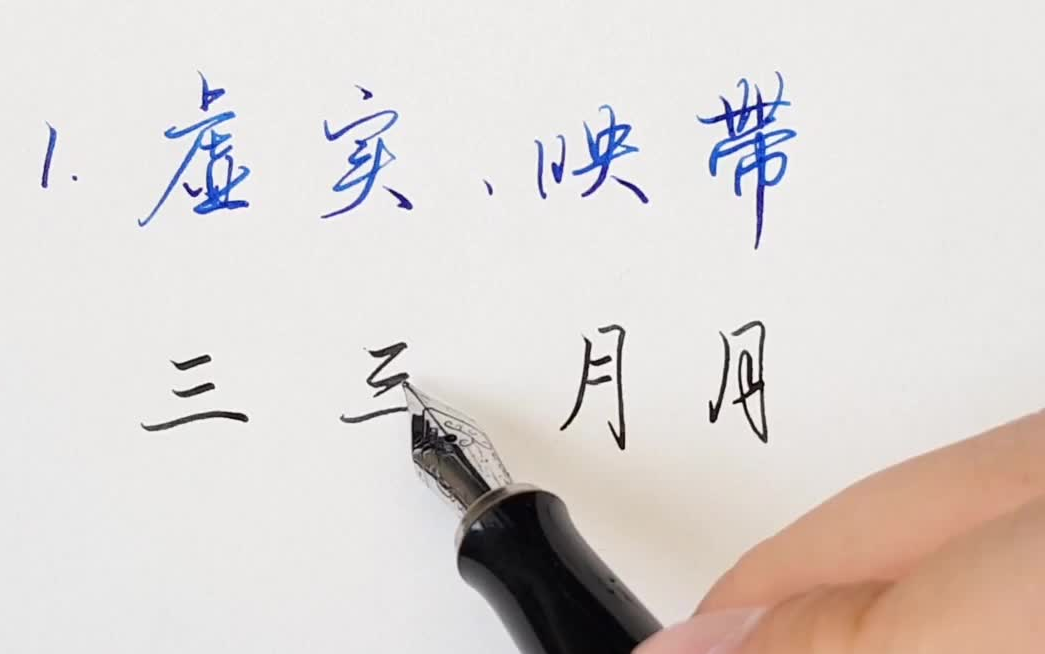 1. 虚实、映带
三 三 月 月